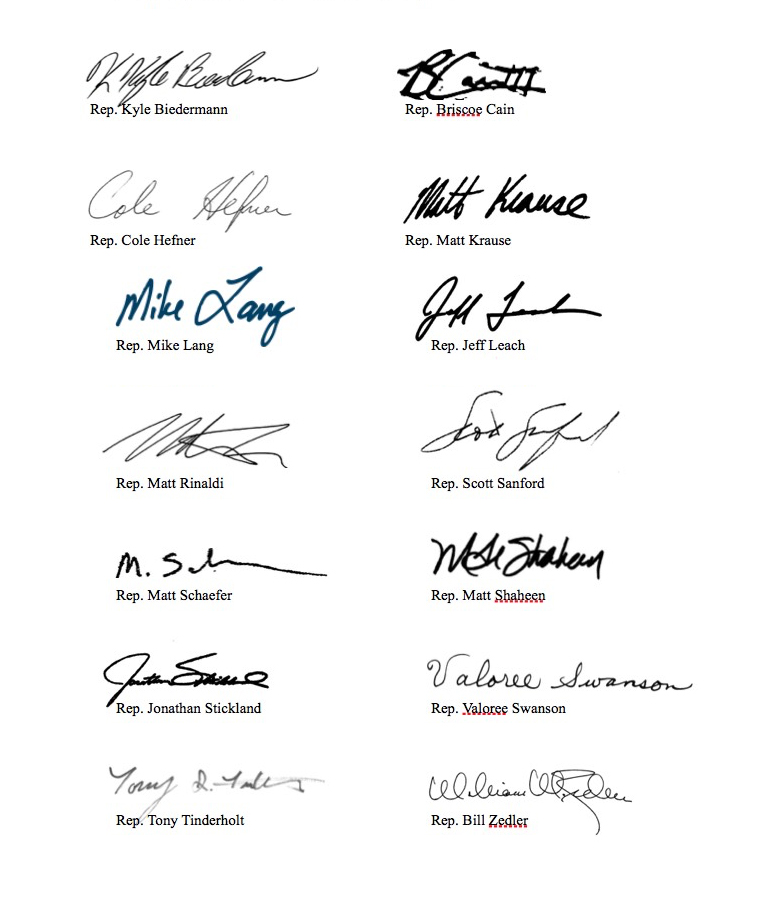 K Kyle Biedermann
Rep. Kyle Biedermann
B Cain III
Rep. Briscoe Cain
Cole Hefner
Rep. Cole Hefner
Matt Krause
Rep. Matt Krause
Mike Lang
Rep. Mike Lang
Jeff Leach
Rep. Jeff Leach
Rep. Matt Rinaldi
Scott Sanford
Rep. Scott Sanford
M. S
Rep. Matt Schaefer
Matt Shaheen
Rep. Matt Shaheen
Jonathan Stickland
Rep. Jonathan Stickland
Valoree Swanson
Rep. Valoree Swanson
Tony D. Tinderholt
Rep. Tony Tinderholt
William Zedler
Rep. Bill Zedler